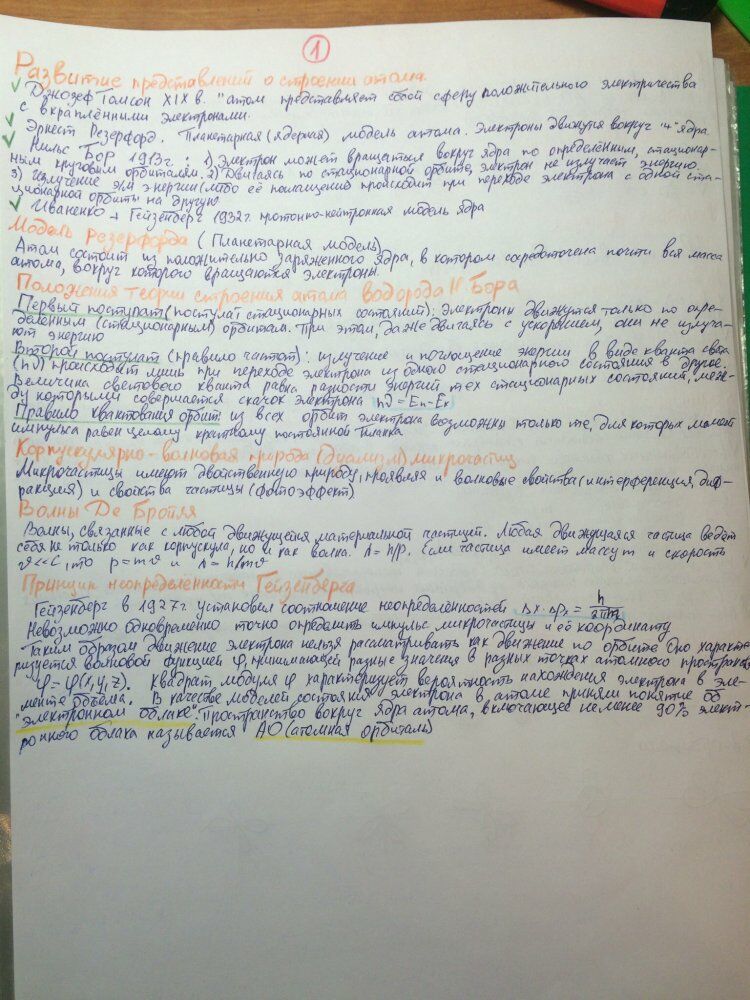 1
Развитие представлений о строении атома
Джозеф Томсон XIX в. "атом представляет собой сферу положительного электричества
с вкраплёнными электронами.
Эрнест Резерфорд. Планетарная (ядерная) модель атома. Электроны движутся вокруг "+" ядра.
Нильс Бор 1913г: 1) Электрон может вращаться вокруг ядра по определённым, стационар-
ным круговым орбиталям. 2) Двигаясь по стационарной орбите, электрон не излучает энергию.
3) излучение э/м энергии (либо её поглащение) происходит при переходе электрона с одной ста-
ционарной орбиты на другую
Иваненко + Гейзенберг 1932г. протонно-нейтронная модель ядра
Модель Резерфорда (Планетарная модель)
Атом состоит из положительно заряженного ядра, в котором сосредоточена почти вся масса
атома, вокруг которого вращаются электроны.
Положения теории строения атома водорода Н. Бора
Первый постулат (постулат стационарных состояний): Электроны движутся только по опре-
деленным (стационарным) орбитам. При этом, даже двигаясь с ускорением, они не излуча-
ют энергию
Второй постулат (правило частот): излучение и поглощение энергии в виде кванта света
(hν) происходит лишь при переходе электрона из одного стационарного состояния в другое.
Величина светового кванта равна разности энергий тех стационарных состояний, меж-
ду которыми совершается скачок электрона hν = Eн-Eк
Правило квантования орбит: из всех орбит электрона возможны только те, для которых момент
импульса равен целому кратному постоянной Планка
Корпускулярно-волновая природа (диализм) микрочастиц
Микрочастицы имеют двойственную природу, проявляя и волновые свойства (интерференция, диф-
ракция) и свойства частицы (фотоэффект)
Волны Де Бройля
Волны, связанные с любой движущейся материальной частицей. Любая движущаяся частица ведёт
себя не только как корпускула, но и как волна. λ = h/p. Если частица имеет массу m и скорость
v<<c, то p = mv и λ = h/mv
Принцип неопределенности Гейзенберга
Гейзенберг в 1927г. установил соотношение неопределённостей Δx·Δpx = h/2πm
Невозможно одновременно точно определить импульс микрочастицы и её координату
Таким образом движение электрона нельзя рассматривать как движение по орбите Оно характе-
ризуется волновой функцией φ, принимающей разные значения в разных точках атомного пространства
φ = φ(x,y,z). Квадрат модуля φ характеризует вероятность нахождения электрона в эле-
менте объёма. В качестве моделей состояния электрона в атоме приняли понятие об
"электронном облаке". Пространство вокруг ядра атома, включающее не менее 90% элект-
ронного облака называется АО (атомная орбиталь)